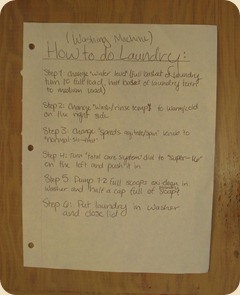 (Washing Machine)
How to do Laundry:
Step 1: change "water level" (full basket of laundry
turn to full load, half basket of laundry turn
to medium load)
Step 2: Change "wash/rinse temp" to warm/cold
on the right side.
Step 3: Change "speeds" knob to
"normal
Step 4: Turn "fabric care system" dial to "super-
on the left and push it in
Step 5: Dump 1 2 full scoops oxi clean in
washer and half a cap full of soap
Step 6: Put laundry in washer
and close lid